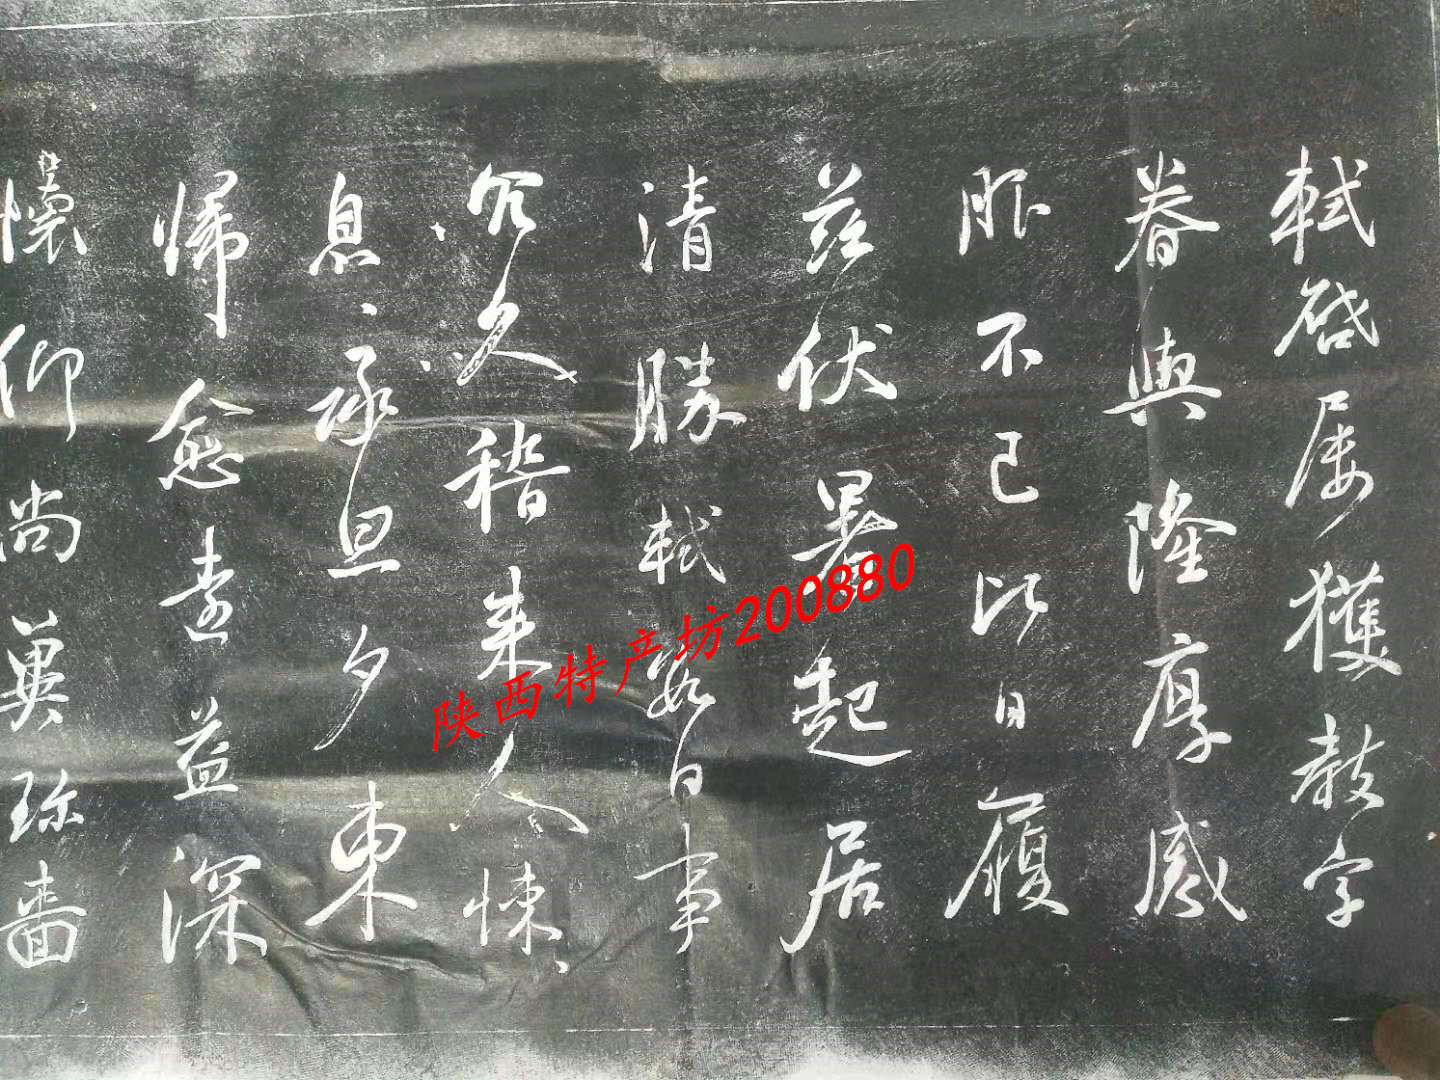 軾啓屢獲教字
眷與隆厚感
服不已比日履
茲伏暑起居
清勝軾數日事
冗久稽來人悚
息、承旦夕東
歸愈遠益深
懷仰尚冀珍嗇
陕西特产坊200880